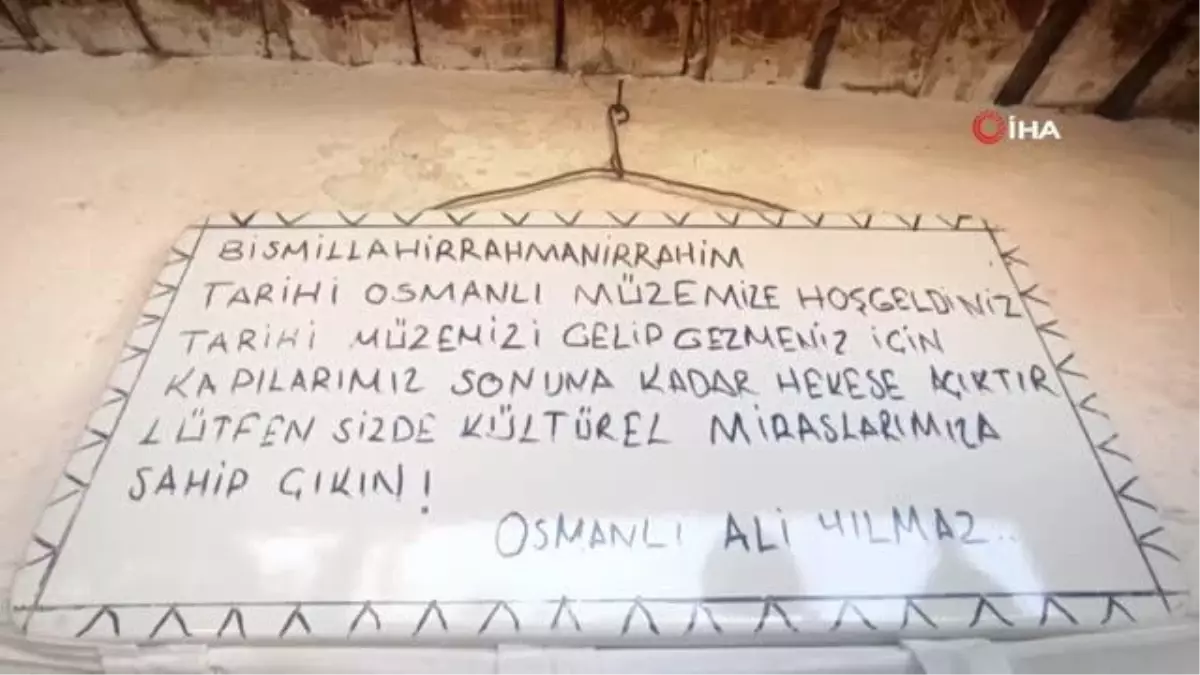 İHA
BİSMİLLAHİRRAHMANİRRAHİM
TARİHİ OSMANLI MÜZEMİZE HOŞGELDİNİZ
TARİHİ MÜZEMİZİ GELİP GEZMENİZ İÇİN
KAPILARIMIZ SONUNA KADAR HEKESE AÇIKTIR
LÜTFEN SİZDE KÜLTÜREL MİRASLARIMIZA
SAHİP ÇIKIN!
OSMANLI ALİ YILMAZ..